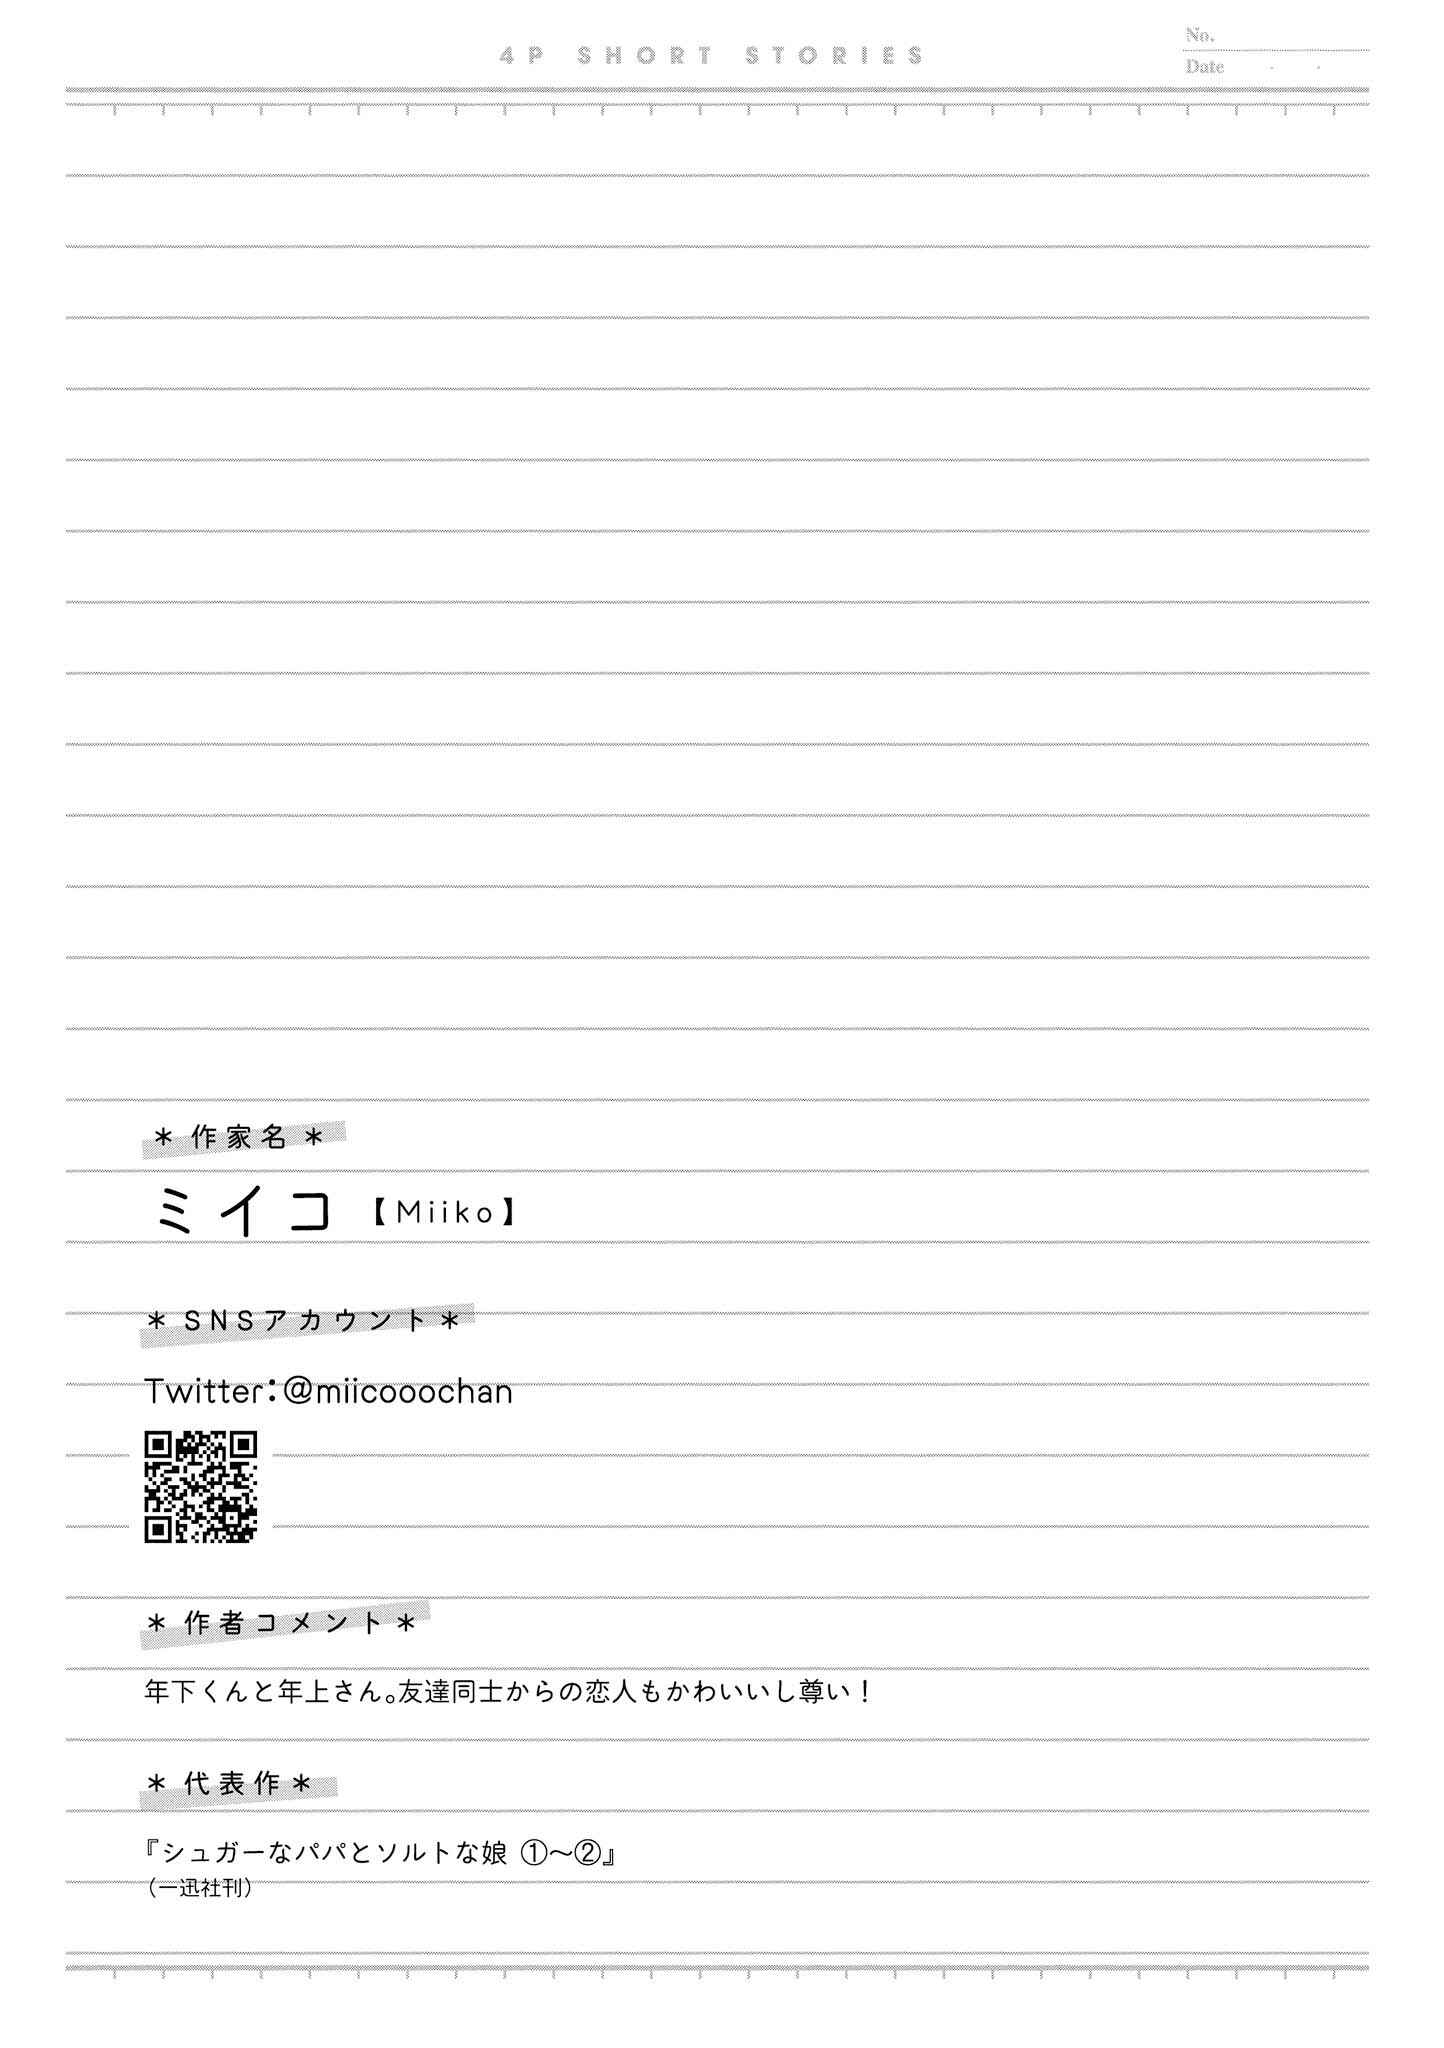 4P SHORT STORIES
No.
Date . .
＊ 作家名 ＊
ミイコ 【Miiko】
＊ SNSアカウント ＊
Twitter：@miicooochan
＊ 作者コメント ＊
年下くんと年上さん。友達同士からの恋人もかわいいし尊い！
＊ 代表作 ＊
『シュガーなパパとソルトな娘 ①～②』
（一迅社刊）